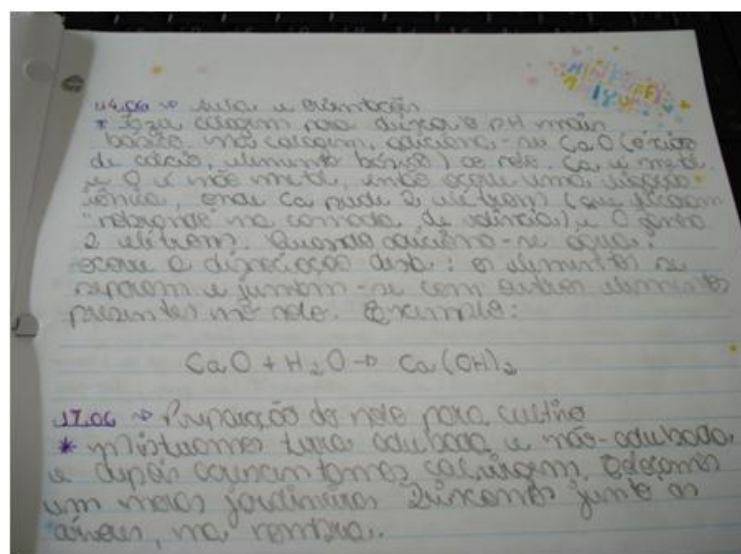 14.06 → aula e orientação
* Faza calagem para deixar o pH mais
básico. Na calagem, adiciona-se CaO (óxido
de cálcio, elemento básico) ao solo. Ca é metal
e O é não metal, então ocorre uma ligação
iônica, onde Ca perde 2 elétrons (que ficaram
"sobrando" na camada de valência) e O ganha
2 elétrons. Quando adiciona-se água,
ocorre a dissociação desta: os elementos se
separam e juntam-se com outros elementos
presentes no solo. Exemplo:
CaO + H₂O → Ca(OH)₂
17.06 → Preparação do solo para cultivo
* misturamos terra adubada e não-adubada
e depois acrescentamos calcário. Colocamos
em meras jardineiras junto as
árvores, na sombra.